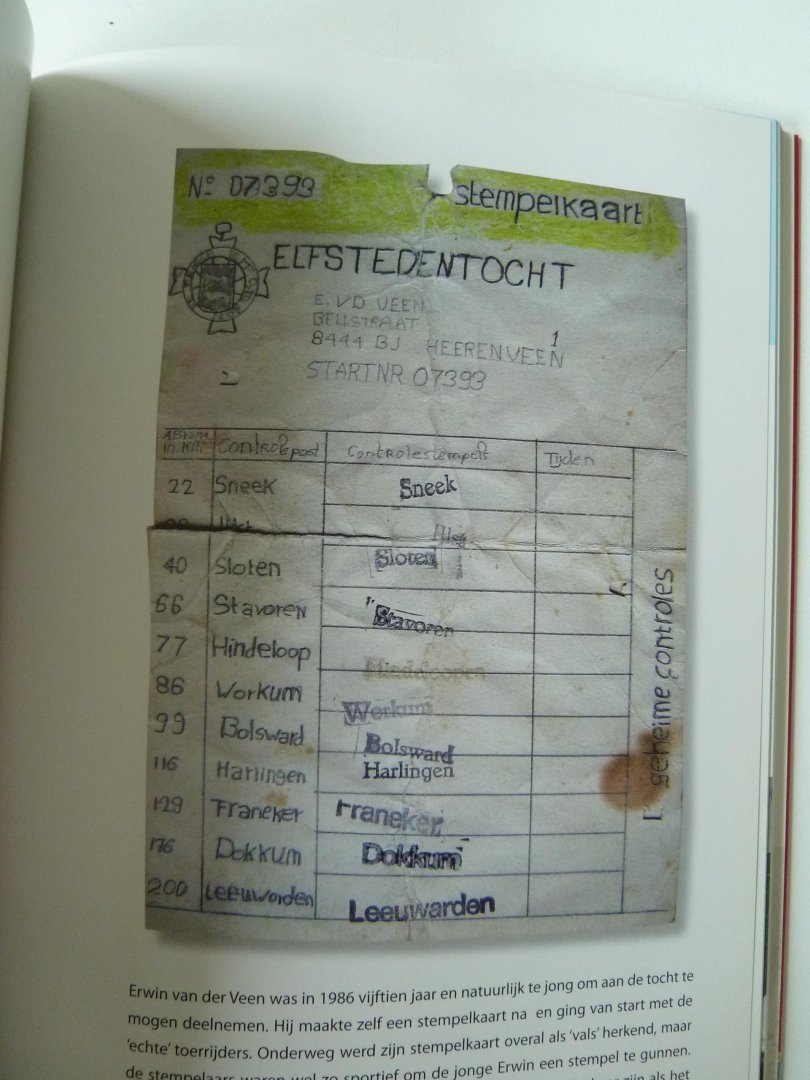 Nº 07393 stempelkaart
ELFSTEDENTOCHT
E. VD VEEN
BELLSTRAAT 1
8444 BJ HEERENVEEN
STARTNR 07393
in km. Controlepost Controlestempels Tijden
22 Sneek Sneek
40 Sloten Sloten
66 Stavoren Stavoren
77 Hindeloop
86 Workum Workum
99 Bolsward Bolsward
116 Harlingen Harlingen
129 Franeker Franeker
176 Dokkum Dokkum
200 Leeuworden Leeuwarden
geheime controles
Erwin van der Veen was in 1986 vijftien jaar en natuurlijk te jong om aan de tocht te
mogen deelnemen. Hij maakte zelf een stempelkaart na en ging van start met de
‘echte’ toerrijders. Onderweg werd zijn stempelkaart overal als ‘vals’ herkend, maar
de stempelaars waren wel zo sportief om de jonge Erwin een stempel te gunnen.
zijn als het